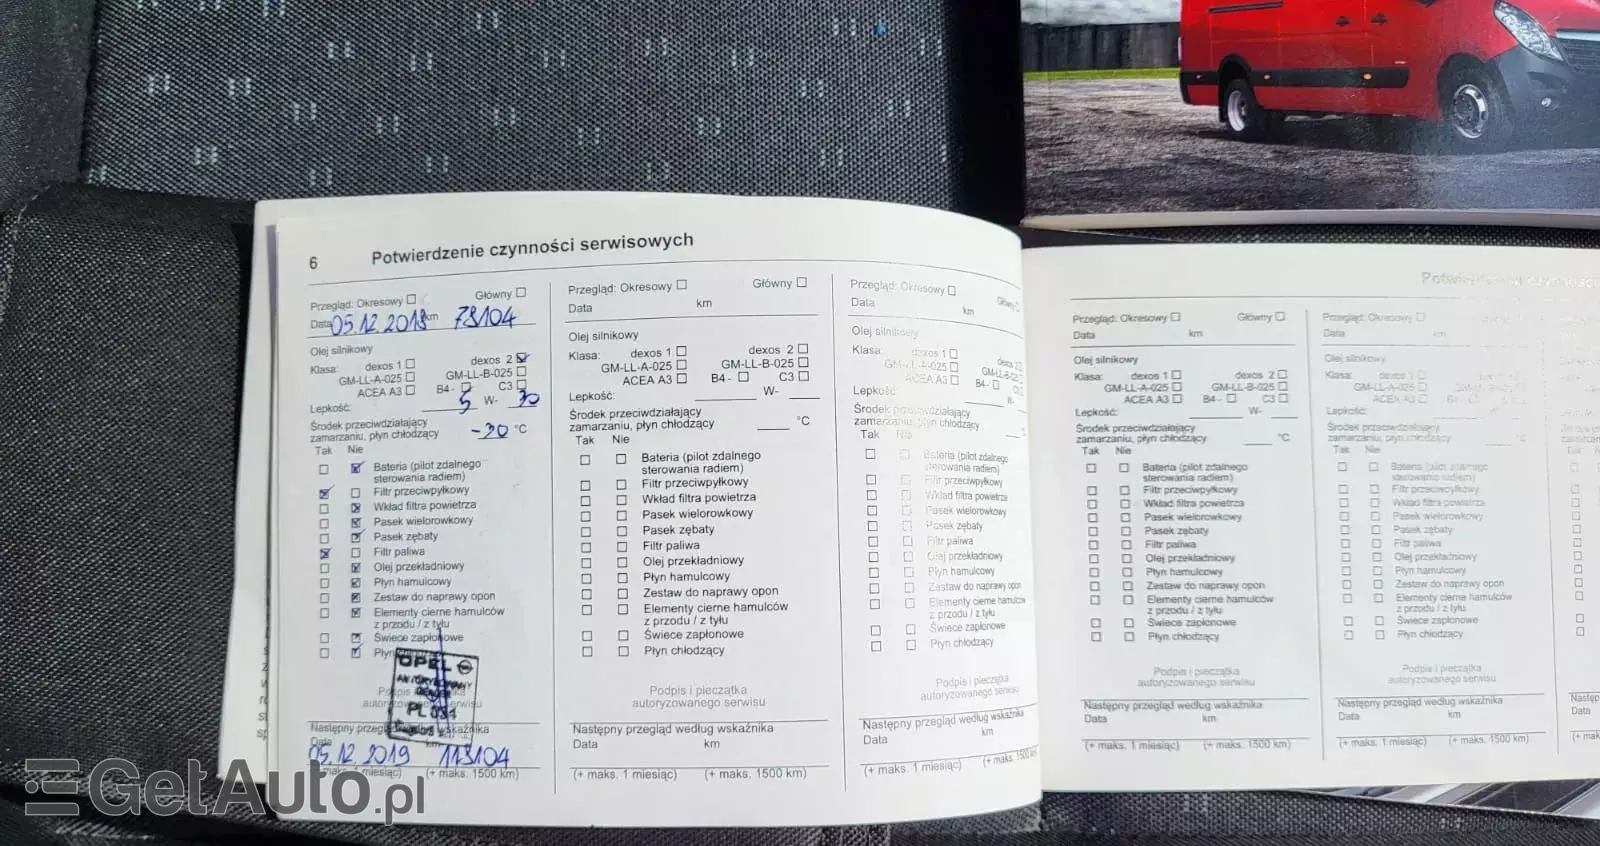 6 Potwierdzenie czynności serwisowych
Przegląd: Okresowy Główny
Data 05.12.2018 km 78104
Olej silnikowy
Klasa: dexos 1 dexos 2
GM-LL-A-025 GM-LL-B-025
ACEA A3 B4- C3
Lepkość: 5 W- 30
Środek przeciwdziałający
zamarzaniu, płyn chłodzący -30 °C
Tak Nie
Bateria (pilot zdalnego
sterowania radiem)
Filtr przeciwpyłkowy
Wkład filtra powietrza
Pasek wielorowkowy
Pasek zębaty
Filtr paliwa
Olej przekładniowy
Płyn hamulcowy
Zestaw do naprawy opon
Elementy cierne hamulców
z przodu / z tyłu
Świece zapłonowe
OPEL
PL 034
05.12.2019 km 113104
(+ maks. 1500 km)
Przegląd: Okresowy Główny
Data km
Olej silnikowy
Klasa: dexos 1 dexos 2
GM-LL-A-025 GM-LL-B-025
ACEA A3 B4- C3
Lepkość: W-
Środek przeciwdziałający
zamarzaniu, płyn chłodzący °C
Tak Nie
Bateria (pilot zdalnego
sterowania radiem)
Filtr przeciwpyłkowy
Wkład filtra powietrza
Pasek wielorowkowy
Pasek zębaty
Filtr paliwa
Olej przekładniowy
Płyn hamulcowy
Zestaw do naprawy opon
Elementy cierne hamulców
z przodu / z tyłu
Świece zapłonowe
Płyn chłodzący
Podpis i pieczątka
autoryzowanego serwisu
Następny przegląd według wskaźnika
Data km
(+ maks. 1 miesiąc) (+ maks. 1500 km)
Przegląd: Okresowy
Data km
Olej silnikowy
Klasa: dexos 1
GM-LL-A-025
ACEA A3 B4-
Lepkość:
Środek przeciwdziałający
zamarzaniu, płyn chłodzący
Tak Nie
Bateria (pilot zdalnego
sterowania radiem)
Filtr przeciwpyłkowy
Wkład filtra powietrza
Pasek wielorowkowy
Pasek zębaty
Filtr paliwa
Olej przekładniowy
Płyn hamulcowy
Zestaw do naprawy opon
Elementy cierne hamulców
z przodu / z tyłu
Świece zapłonowe
Płyn chłodzący
Podpis i pieczątka
autoryzowanego serwisu
Następny przegląd według wskaźnika
Data km
(+ maks. 1 miesiąc) (+ maks. 1500 km
Przegląd: Okresowy Główny
Data km
Olej silnikowy
Klasa: dexos 1 dexos 2
GM-LL-A-025 GM-LL-B-025
ACEA A3 B4- C3
Lepkość: W-
Środek przeciwdziałający
zamarzaniu, płyn chłodzący °C
Tak Nie
Bateria (pilot zdalnego
sterowania radiem)
Filtr przeciwpyłkowy
Wkład filtra powietrza
Pasek wielorowkowy
Pasek zębaty
Filtr paliwa
Olej przekładniowy
Płyn hamulcowy
Zestaw do naprawy opon
Elementy cierne hamulców
z przodu / z tyłu
Świece zapłonowe
Płyn chłodzący
Podpis i pieczątka
autoryzowanego serwisu
Następny przegląd według wskaźnika
Data km
(+ maks. 1 miesiąc) (+ maks. 1500 km)
Przegląd: Okresowy
Data
Olej silnikowy
Klasa: dexos 1
GM-LL-A-025
ACEA A3
Lepkość:
Środek przeciwdziałający
zamarzaniu, płyn chłodzący °C
Tak Nie
Bateria (pilot zdalnego
sterowania radiem)
Filtr przeciwpyłkowy
Wkład filtra powietrza
Pasek wielorowkowy
Pasek zębaty
Filtr paliwa
Olej przekładniowy
Płyn hamulcowy
Zestaw do naprawy opon
Elementy cierne hamulców
z przodu / z tyłu
Świece zapłonowe
Płyn chłodzący
Podpis i pieczątka
autoryzowanego serwisu
Następny przegląd według wskaźnika
Data km
(+ maks. 1 miesiąc) (+ maks. 1500 km)
Data
GetAuto.pl